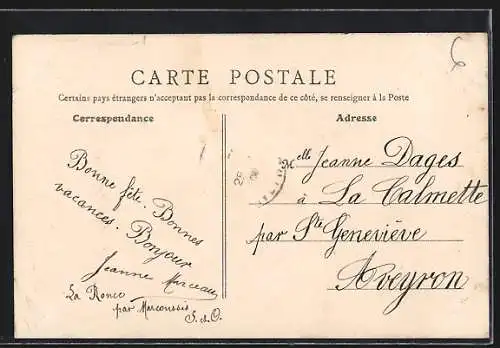 CARTE POSTALE
Certains pays étrangers n'acceptant pas la correspondance de ce côté, se renseigner à la Poste
Correspondance
Bonne fête. Bonnes
vacances. Bonjour
Jeanne Marceau
La Ronce
par Marcoussis
S.-et-O.
Adresse
Melle Jeanne Dages
à La Calmette
par Ste Geneviève
Aveyron